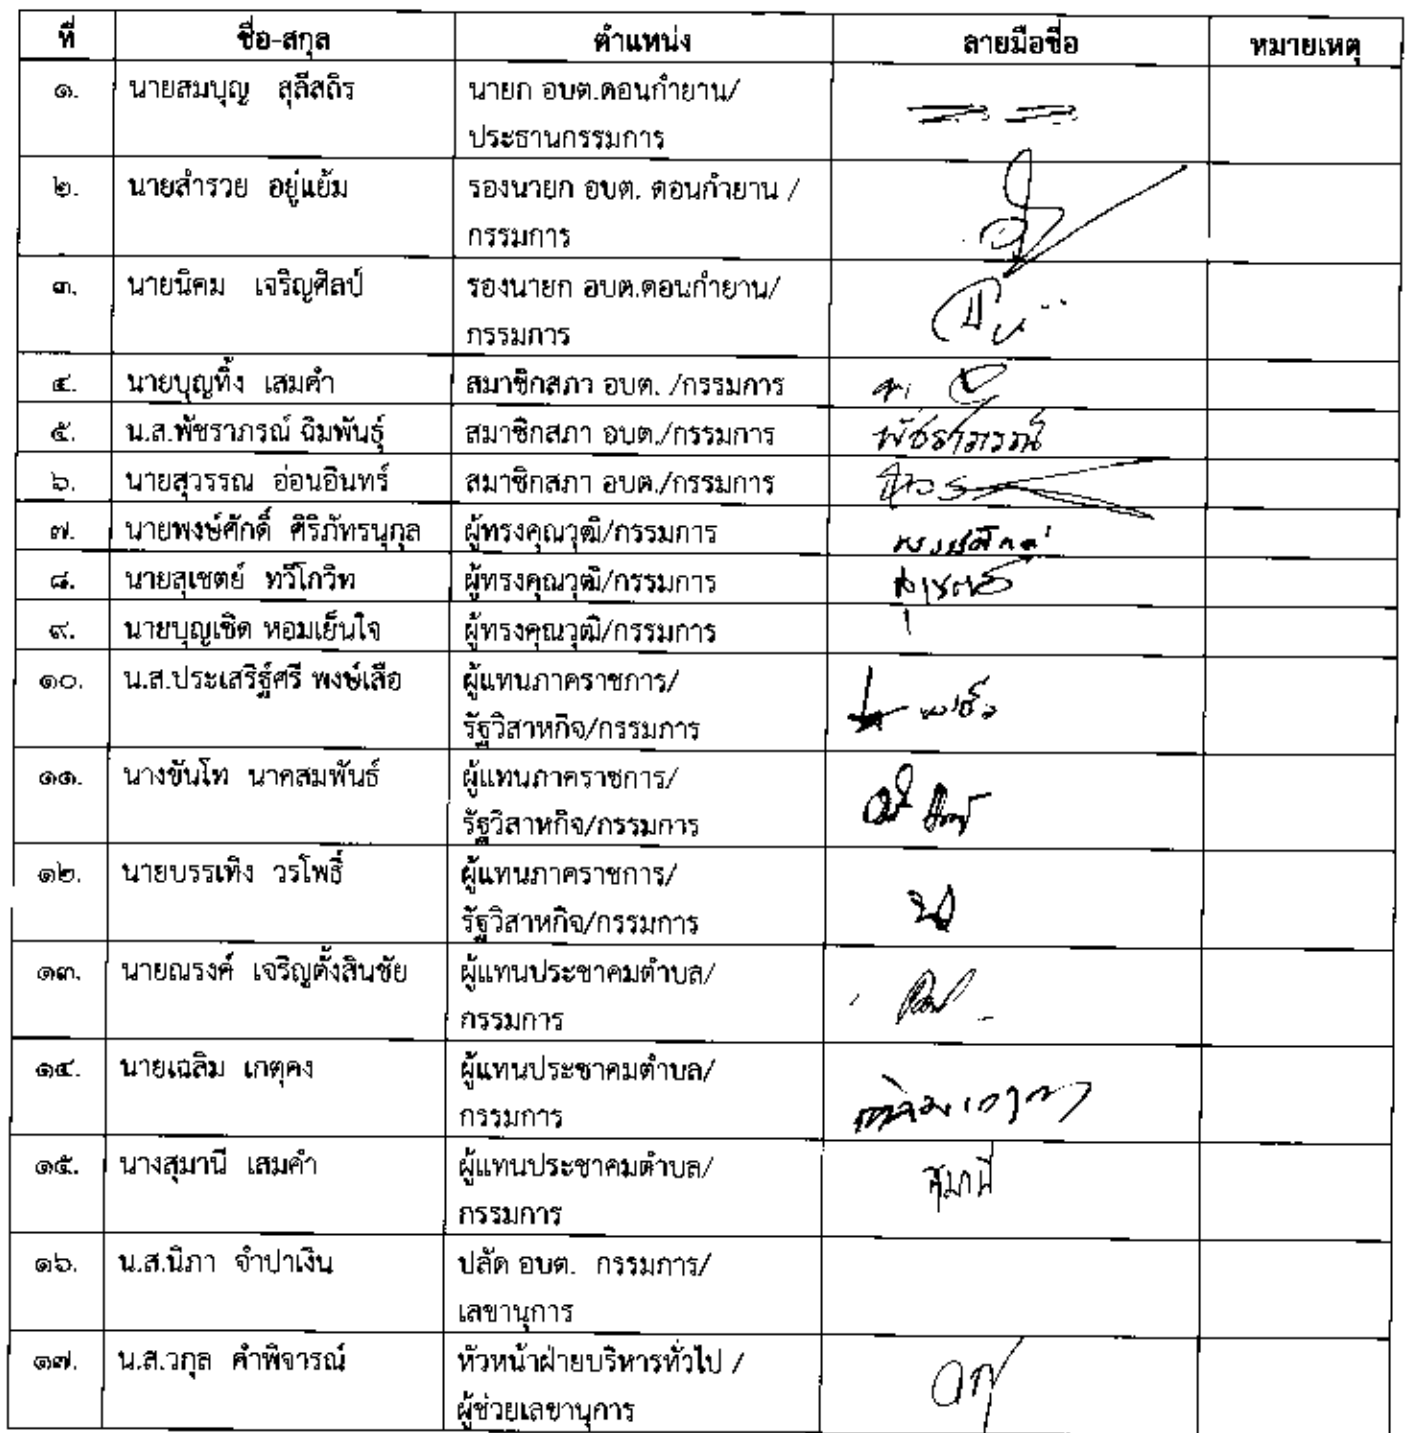 ที่ ชื่อ-สกุล ตำแหน่ง ลายมือชื่อ หมายเหตุ
๑. นายสมบุญ สุลีสถิร นายก อบต.ดอนกำยาน/
ประธานกรรมการ
๒. นายสำรวย อยู่แย้ม รองนายก อบต. ดอนกำยาน /
กรรมการ
๓. นายนิคม เจริญศิลป์ รองนายก อบต.ดอนกำยาน/
กรรมการ
๔. นายบุญทิ้ง เสมคำ สมาชิกสภา อบต. /กรรมการ
๕. น.ส.พัชราภรณ์ ฉิมพันธุ์ สมาชิกสภา อบต./กรรมการ พัชราภรณ์
๖. นายสุวรรณ อ่อนอินทร์ สมาชิกสภา อบต./กรรมการ
๗. นายพงษ์ศักดิ์ ศิริภัทรนุกุล ผู้ทรงคุณวุฒิ/กรรมการ พงษ์ศักดิ์
๘. นายสุเชตย์ ทวีโกวิท ผู้ทรงคุณวุฒิ/กรรมการ
๙. นายบุญเชิด หอมเย็นใจ ผู้ทรงคุณวุฒิ/กรรมการ
๑๐. น.ส.ประเสริฐ์ศรี พงษ์เสือ ผู้แทนภาคราชการ/
รัฐวิสาหกิจ/กรรมการ
๑๑. นางขันโท นาคสมพันธ์ ผู้แทนภาคราชการ/
รัฐวิสาหกิจ/กรรมการ
๑๒. นายบรรเทิง วรโพธิ์ ผู้แทนภาคราชการ/
รัฐวิสาหกิจ/กรรมการ
๑๓. นายณรงค์ เจริญตั้งสินชัย ผู้แทนประชาคมตำบล/
กรรมการ
๑๔. นายเฉลิม เกตุคง ผู้แทนประชาคมตำบล/
กรรมการ
๑๕. นางสุมานี เสมคำ ผู้แทนประชาคมตำบล/ สุมานี
กรรมการ
๑๖. น.ส.นิภา จำปาเงิน ปลัด อบต. กรรมการ/
เลขานุการ
๑๗. น.ส.วกุล คำพิจารณ์ หัวหน้าฝ่ายบริหารทั่วไป /
ผู้ช่วยเลขานุการ